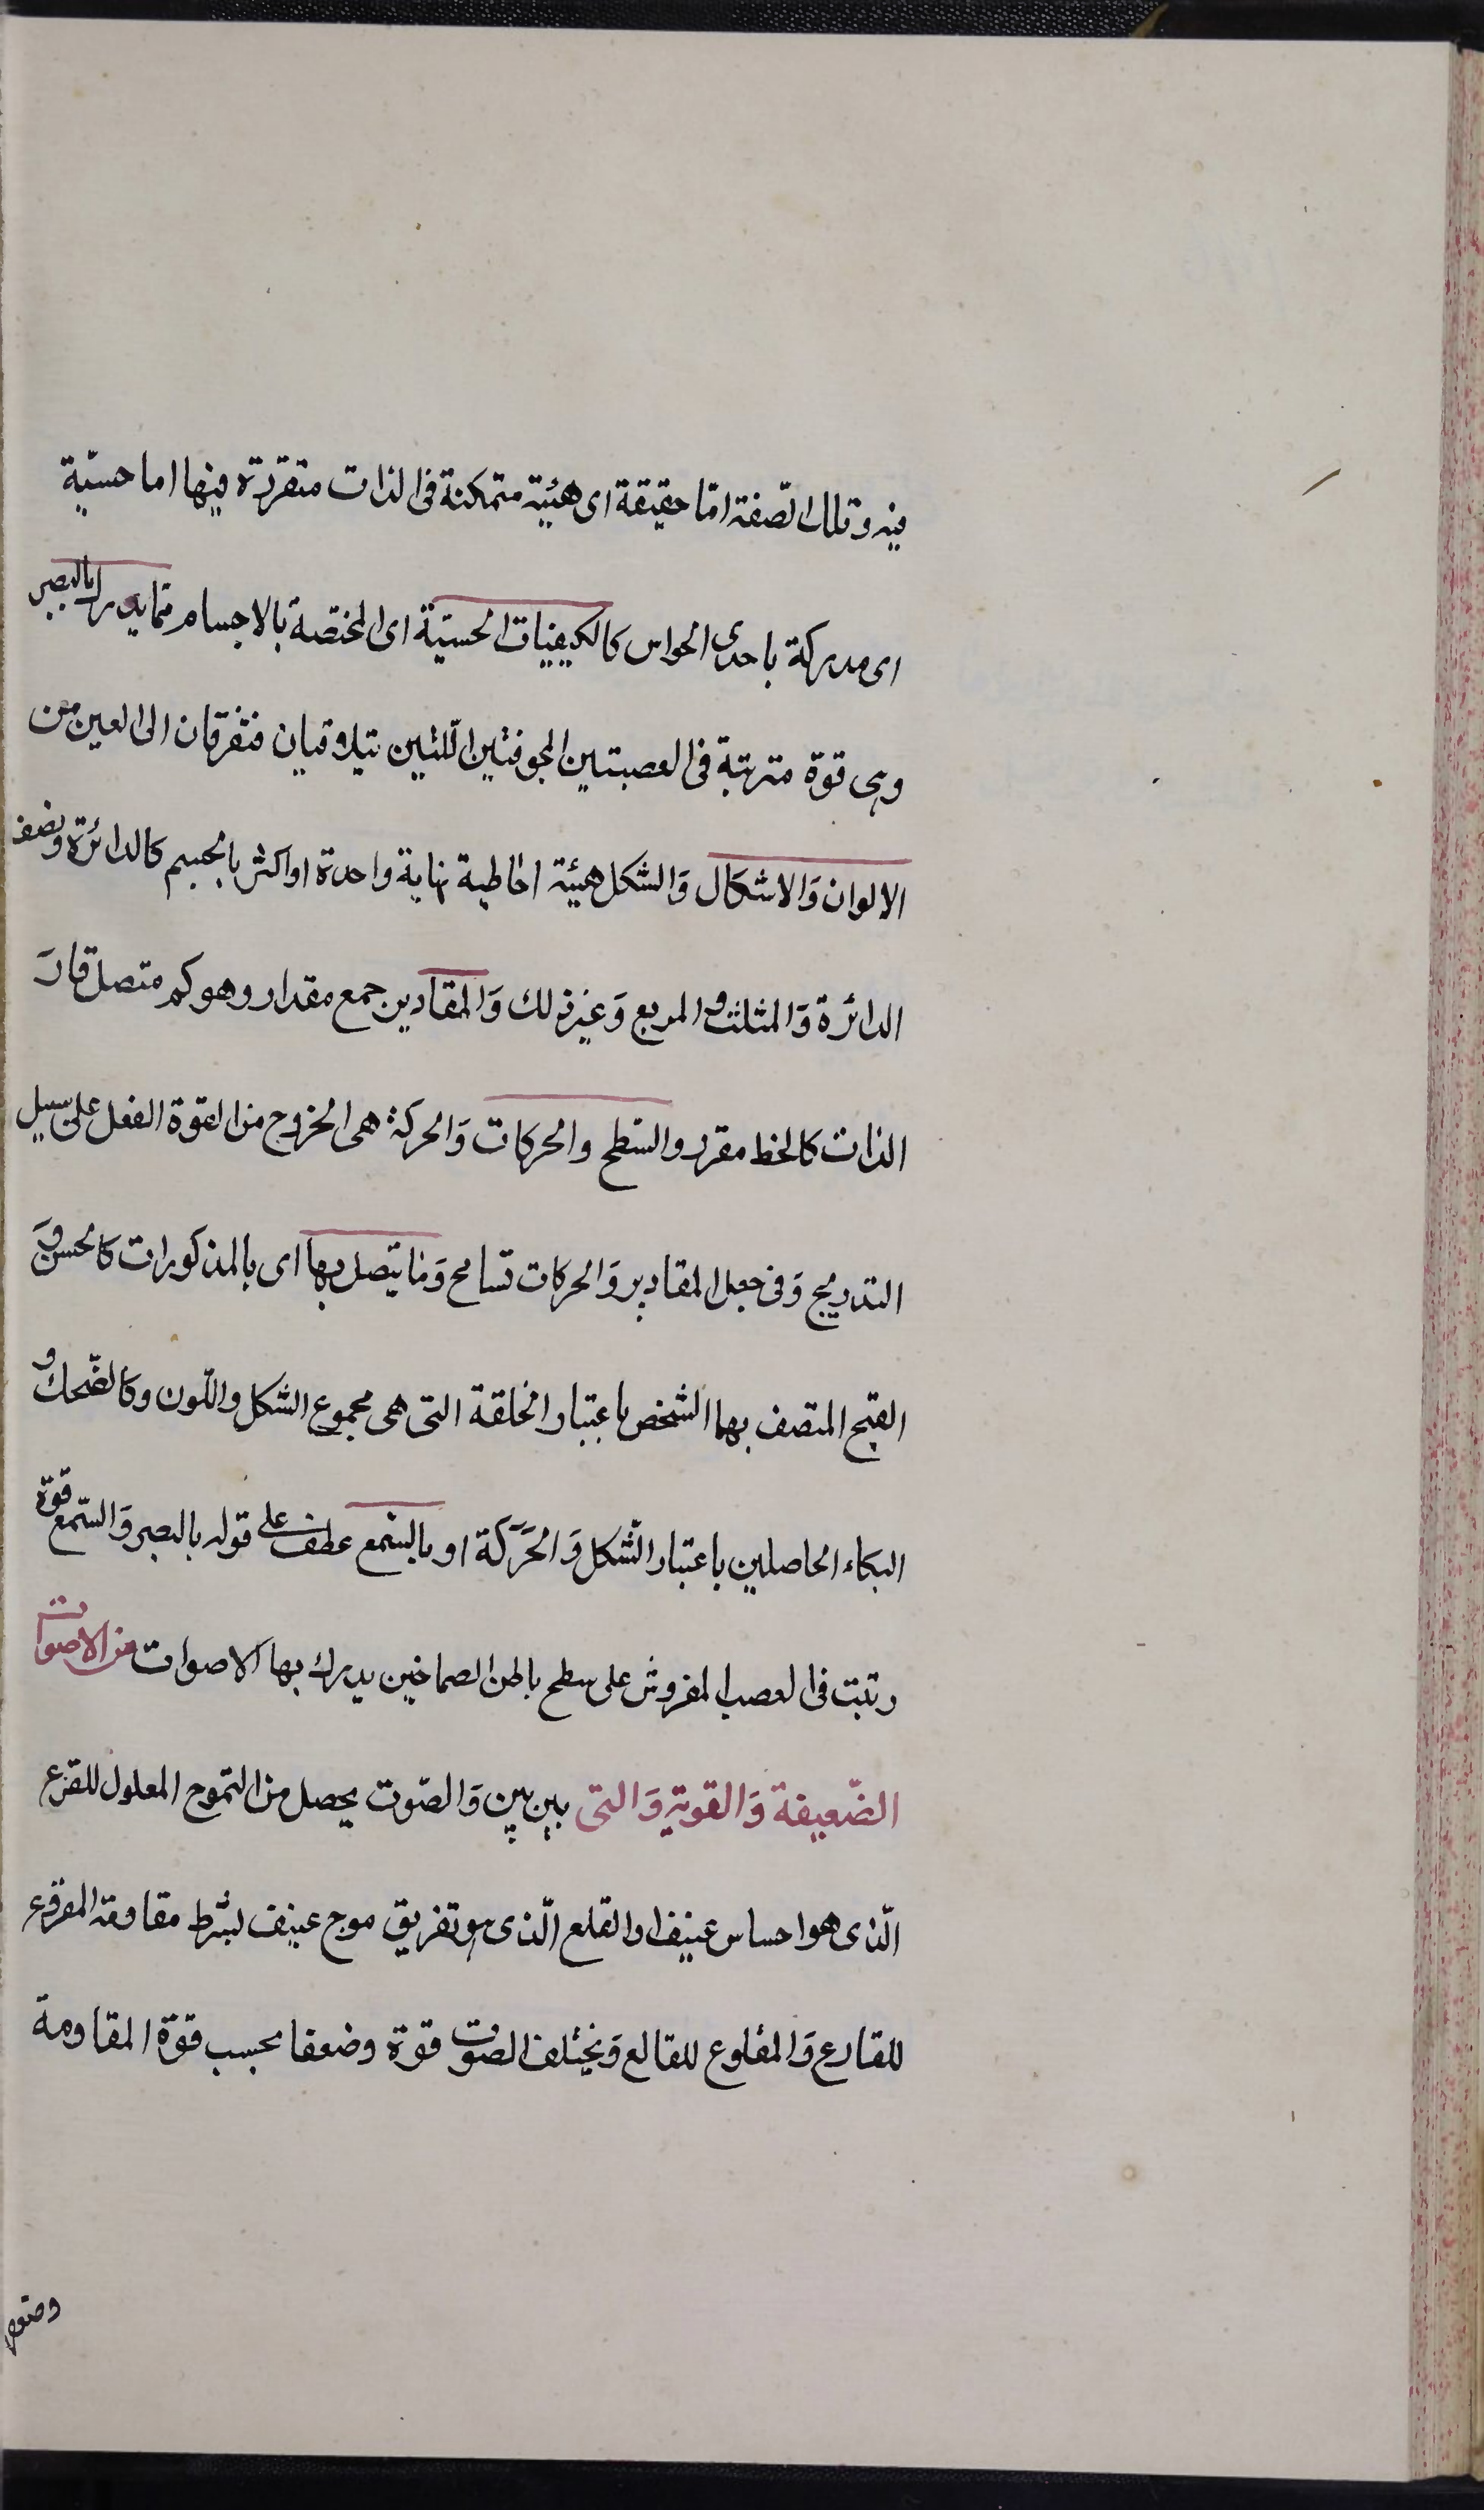 فيه وتلك الصّفة امّا حقيقة اى هئية متمكنة فى الذات متقررة فيها اما حسيّة
اى مدركة باحدى الحواس كالكيفيات الحسيّة اى المختصة بالاجسام ممّا يدرك بالبصر
وهى قوة مترتبة فى العصبتين المجوفتين اللتين تيلاوقيان فتفرقان الى العين من
الالوان وَالاشكال وَالشكل هيئة احاطية نهاية واحدة او اكثر بالجسم كالدائرة ونصف
الدائرة وَالمثلث والمربع وَغير ذلك وَالمقادير جمع مقدار وهو كم متصل قارَ
الذات كالخط مقرر والسّطح والحركات وَالحركة هى الخروج من القوة الفعل على سبيل
التدريج وَفى جعل المقادير وَالحركات تسامح وَما يتصل بها اى بالمذكورات كالحسن وَ
القبح المتصف بها الشخص باعتبار الخلقة التى هى مجموع الشكل واللّون وكالضّحك و
البكاء الحاصلين باعتبار الشّكل وَالحَرَكة او بالسّمع عطف على قوله بالبصر وَالسّمع قوة
رتبت فى العصب المفروش على سطح باطن الصماخين يدرك بها الاصوات من الاصوات
الضّعيفة وَالقوية وَالتى بين بين وَالصّوت يحصل من التموج المعلول للقرع
الّذى هو احساس عنيف والقلع الّذى هو تفريق موج عنيف بشرط مقاومة المقروع
للقارع وَالمقلوع للقالع وَيختلف الصوت قوة وضعفا بحسب قوة المقاومة